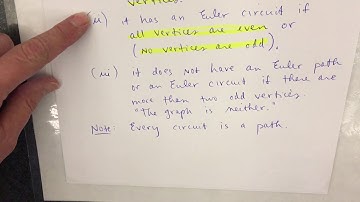 vertices.
(ii) it has an Euler circuit if
all vertices are even or
(no vertices are odd).
(iii) it does not have an Euler path
or an Euler Circuit if there are
more than two odd vertices.
"The graph is neither."
Note: Every circuit is a path.